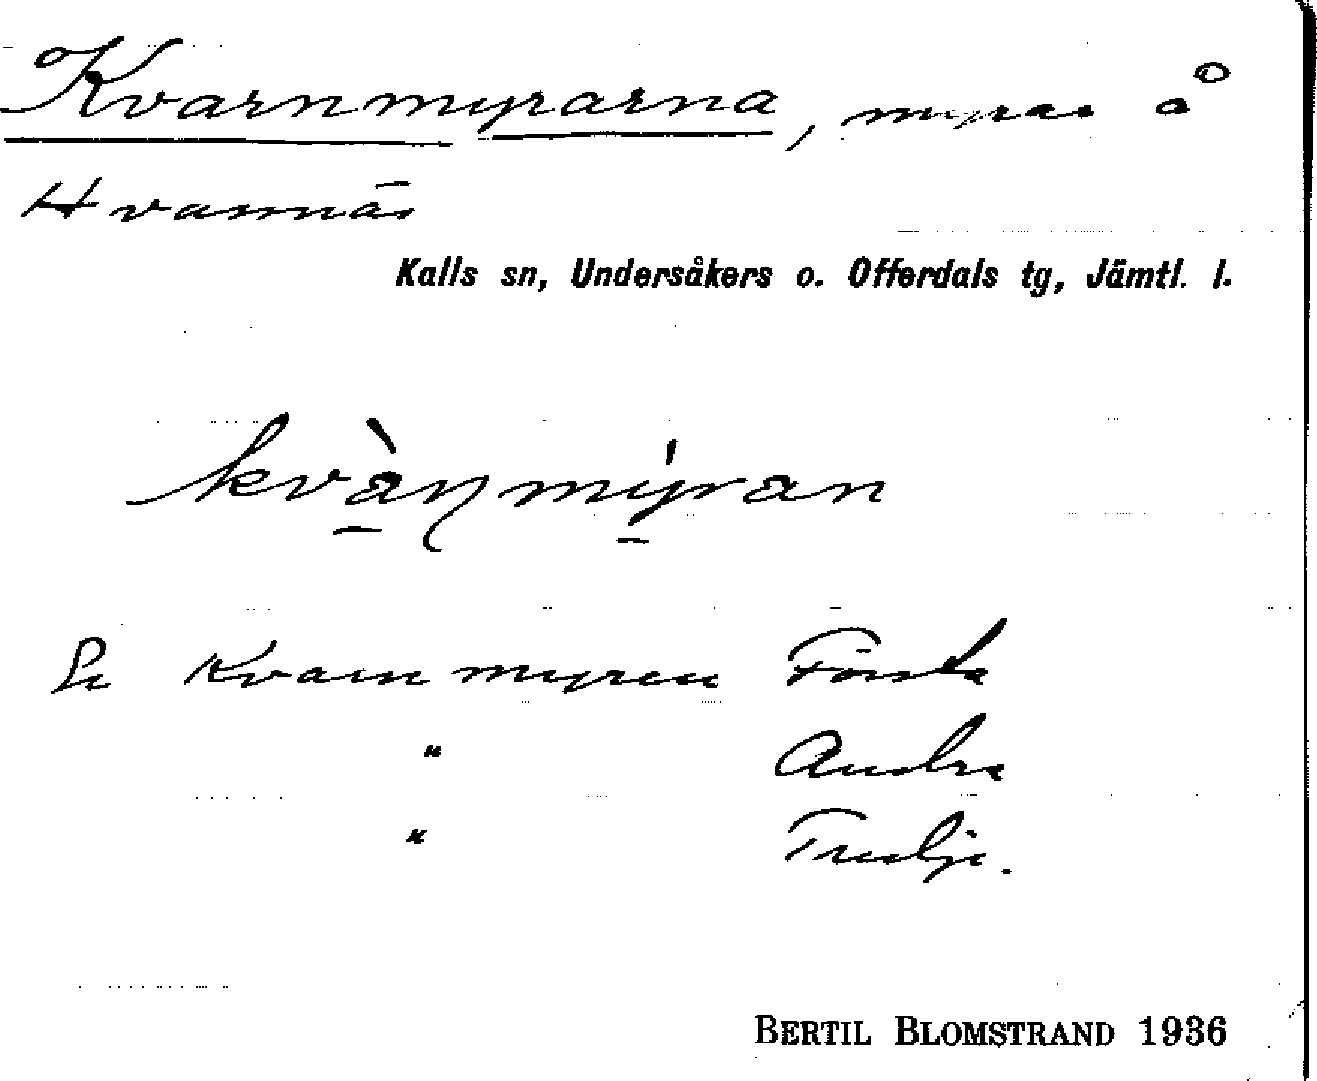 Kvarnmyrarna, myrar å
Hvassnäs
Kalls sn, Undersåkers o. Offerdals tg, Jämtl. l.
kvàɳmýran
Se Kvarnmyren Första
" Andra
" Tredje.
BERTIL BLOMSTRAND 1936